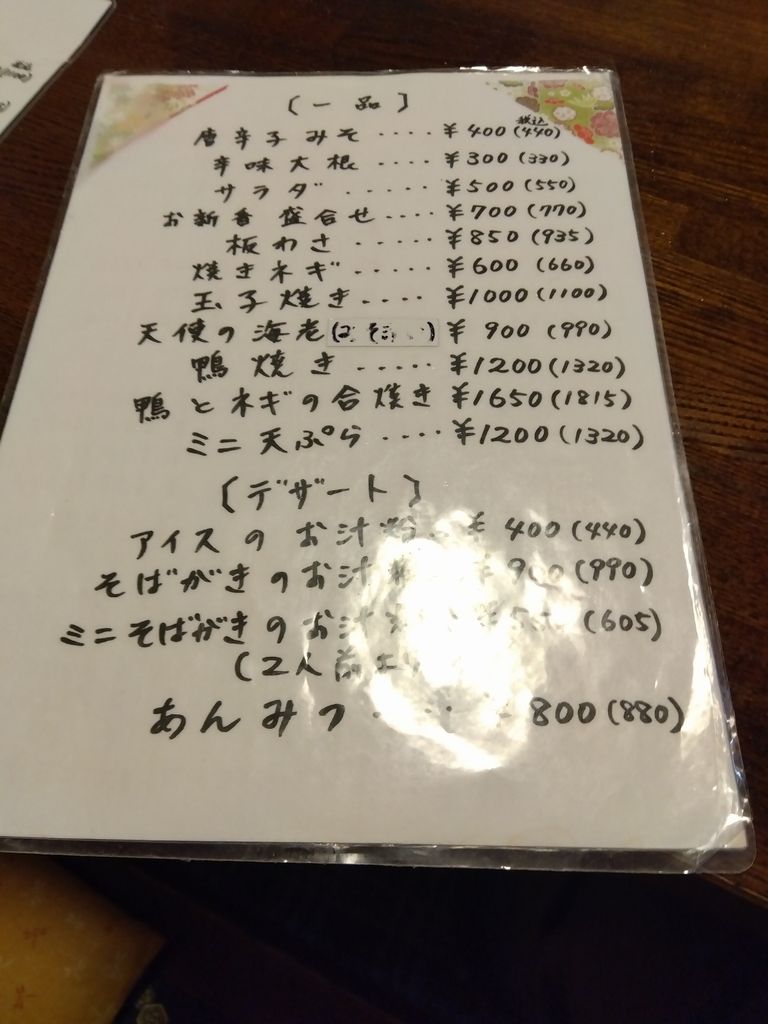 〔一品〕
税込
唐辛子みそ ‥‥ ¥400(440)
辛味大根 ‥‥ ¥300(330)
サラダ ‥‥‥ ¥500(550)
お新香盛合せ ‥‥ ¥700(770)
板わさ ‥‥‥ ¥850(935)
焼きネギ ‥‥‥ ¥600(660)
玉子焼き ‥‥ ¥1000(1100)
天使の海老 ¥900(990)
鴨焼き ‥‥‥ ¥1200(1320)
鴨とネギの合焼き ¥1650(1815)
ミニ天ぷら ‥‥ ¥1200(1320)
〔デザート〕
アイスのお汁粉 ‥ ¥400(440)
そばがきのお汁 900(990)
ミニそばがきのお汁 (605)
(2人前
あんみつ ‥‥ 800(880)